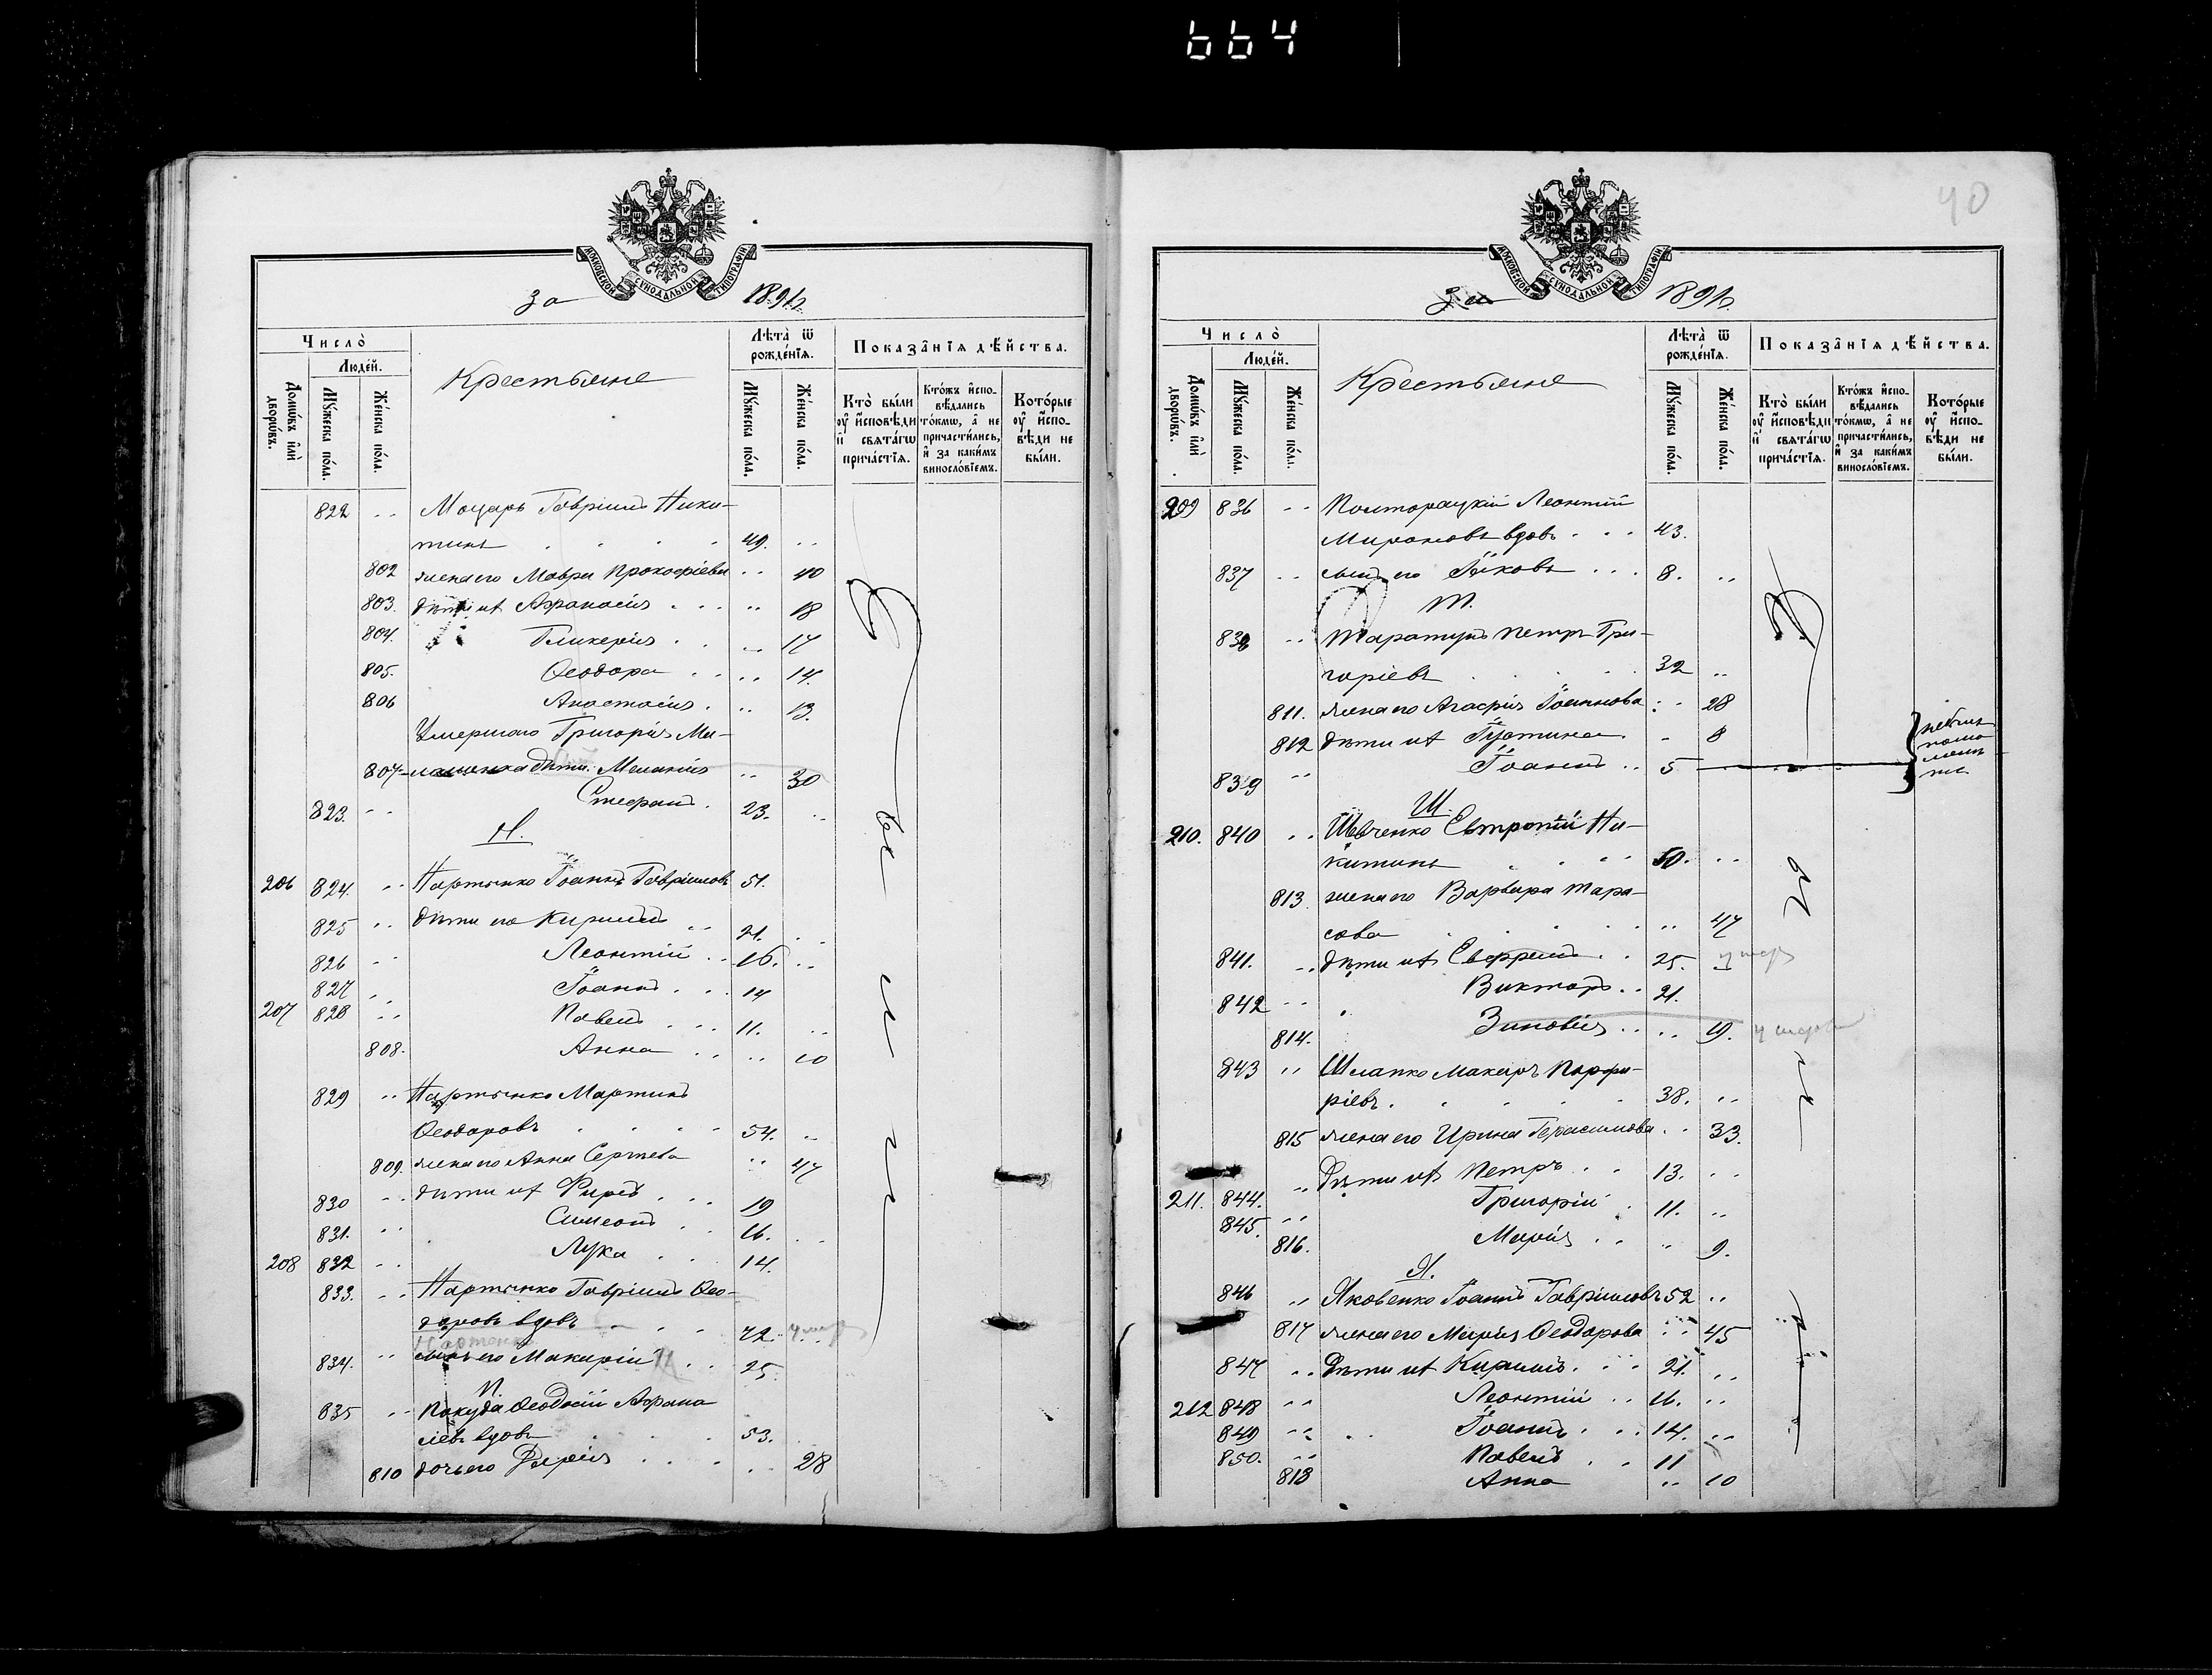 664
40
МОСКОВСКОЙ СѴНОДАЛЬНОЙ ТИПОГРАФІИ
За 1891 г.
Число̀
Людей.
Домѡвъ и҆лѝ дворѡвъ.
Мꙋжеска по́ла.
Же́нска по́ла.
Крестьяне
Лѣта̀ ѿ рожде́нїѧ.
Мꙋжеска по́ла.
Же́нска по́ла.
Показа̑нїѧ дѣ́йства.
Кто̀ бы́ли оу҆ и҆сповѣди и҆ свѧта́гѡ прича́стїѧ.
Кто́жъ и҆спо-
вѣдались
то́кмѡ, а҆ не
причасти́лись,
и҆ за каки́мъ
винословїемъ.
Кото́рые
оу҆ и҆спо-
вѣди не
бы́ли.
822 Моцарь Гавріилъ Ники-
тинъ 49.
802 жена его Мавра Прокофіева 40
803. дѣти ихъ Афанасія 18
804. Гликерія 17
805. Ѳеодора 14.
806 Анастасія 13.
Умершаго Григорія Ма-
807 дѣти: Меланія 30
823. Стефанъ 23.
Н.
206 824. Нартенко Іоаннъ Гавріиловъ 51.
825 дѣти его Кириллъ 21.
826 Леонтій 16.
827 Іоаннъ 14
207 828 Павелъ 11.
808. Анна 10
829 Нартенко Мартинъ
Ѳеодоровъ 54.
809. жена его Анна Сергѣева 47
830 дѣти ихъ Фирсъ 19
831. Симеонъ 16.
208 832 Лука 14.
833. Нартенко Гавріилъ Ѳео-
доровъ вдовъ 72. умер
834. сынъ его Макарій 25.
П.
835 Покуда Ѳеодосій Афана
сіевъ вдовъ 53.
810 дочь его Дарія 28
МОСКОВСКОЙ СѴНОДАЛЬНОЙ ТИПОГРАФІИ
За 1891 г.
Число̀
Людей.
Домѡвъ и҆лѝ дворѡвъ.
Мꙋжеска по́ла.
Же́нска по́л.
Крестьяне
Лѣта̀ ѿ рожде́нїѧ.
Мꙋжеска по́ла.
Же́нска по́ла.
Показа̑нїѧ дѣ́йства.
Кто̀ бы́ли оу҆ и҆сповѣди и҆ свѧта́гѡ прича́стїѧ.
Кто́жъ и҆спо-
вѣдались
то́кмѡ, а҆ не
причасти́лись,
и҆ за каки́мъ
винословїемъ.
Кото́рые
оу҆ и҆спо-
вѣди не
бы́ли.
209 836 Полторацкій Леонтій
Мироновъ вдовъ 43.
837 сынъ его Іаковъ 8.
Т.
838 Таратунъ Петръ Гри-
горіевъ 32
811. жена его Агафія Іоаннова 28
812 дѣти ихъ Іустина 8
839 Іоаннъ 5
Ш.
210. 840 Шевченко Евтропій Ни-
китинъ 50.
813. жена его Варвара Тара-
сова 47
841. дѣти ихъ Евфремъ 25. умер
842 Викторъ 21.
814. Зиновія 19. умерла
843 Шлапко Макаръ Порфи-
ріевъ 38.
815 жена его Ирина Герасимова 33.
Дѣти ихъ Петръ 13.
211. 844. Григорій 11.
845.
816. Марія 9.
Я.
846 Яковенко Іоаннъ Гавріиловъ 52
817 жена его Марія Ѳеодорова 45
847 Дѣти ихъ Кириллъ 21.
212 848 Леонтій 16.
849 Іоаннъ 14.
850. Павелъ 11
818 Анна 10